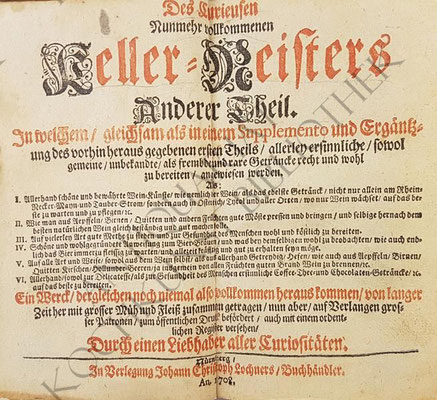 Des Curieusen
Nunmehr vollkommenen
Keller-Meisters
Anderer Theil.
In welchem / gleichsam als in einem Supplemento und Ergäntz-
ung des vorhin heraus gegebenen ersten Theils / allerley ersinnliche / sowol
gemeine / unbekandte / als frembde und rare Geträncke recht und wohl
zu bereiten / angewiesen werden.
Als:
I. Allerhand schöne und bewährte Wein-Künste / neuemlicher Wein / als das edelste Geträncke / nicht nur allein am Rhein-
Necker-Mayn- und Tauber-Strom / sondern auch in Oestreich / Tyrol und aller Orten / wo nur Wein wächset / auf das be-
ste zu warten und zu pflegen / ꝛc.
II. Wie man aus Aepffeln / Birnen / Quitten und andern Früchten gute Möste pressen und bringen / und selbige hernach dem
besten natürlichen Wein gleich beständig und gut machen soll.
III. Auf vielerley Art gute Methe zu sieden und zur Gesundheit des Menschen wohl und köstlich zu bereiten.
IV. Schöne und wohlgegründete Anweisung zum Bier-Bräuen / und was bey demselbigen wohl zu beobachten / wie auch end-
lich das Bier immerzu fleissig zu warten / und allezeit beständig und gut zu erhalten seyn möge.
V. Auf alle Art und Weise / sowol aus dem Wein selbsten / als auf allerhand Getreydig / Hefen / wie auch aus Aepffeln / Birnen /
Quitten / Kirschen / Hollunder-Beeren / ja in summa von allen Früchten guten Brand-Wein zu brennen / ꝛc.
VI. Allerhand / sowol zur Delicatesse / als zur Gesundheit des Menschen dienliche Coffee-Thee- und Chocolaten-Geträncke / ꝛc.
auf das beste zu bereiten.
Ein Werck / dergleichen noch niemal also vollkommen heraus kommen / von langer
Zeit her mit grosser Müh und Fleiß zusammen getragen / nun aber / auf Verlangen gros-
ser Patronen / zum öffentlichen Druck befördert / auch mit einem ordent-
lichen Register versehen /
Durch einen Liebhaber aller Curiositäten.
Nürnberg /
In Verlegung Johann Christoph Lochners / Buchhändler.
An. 1708.